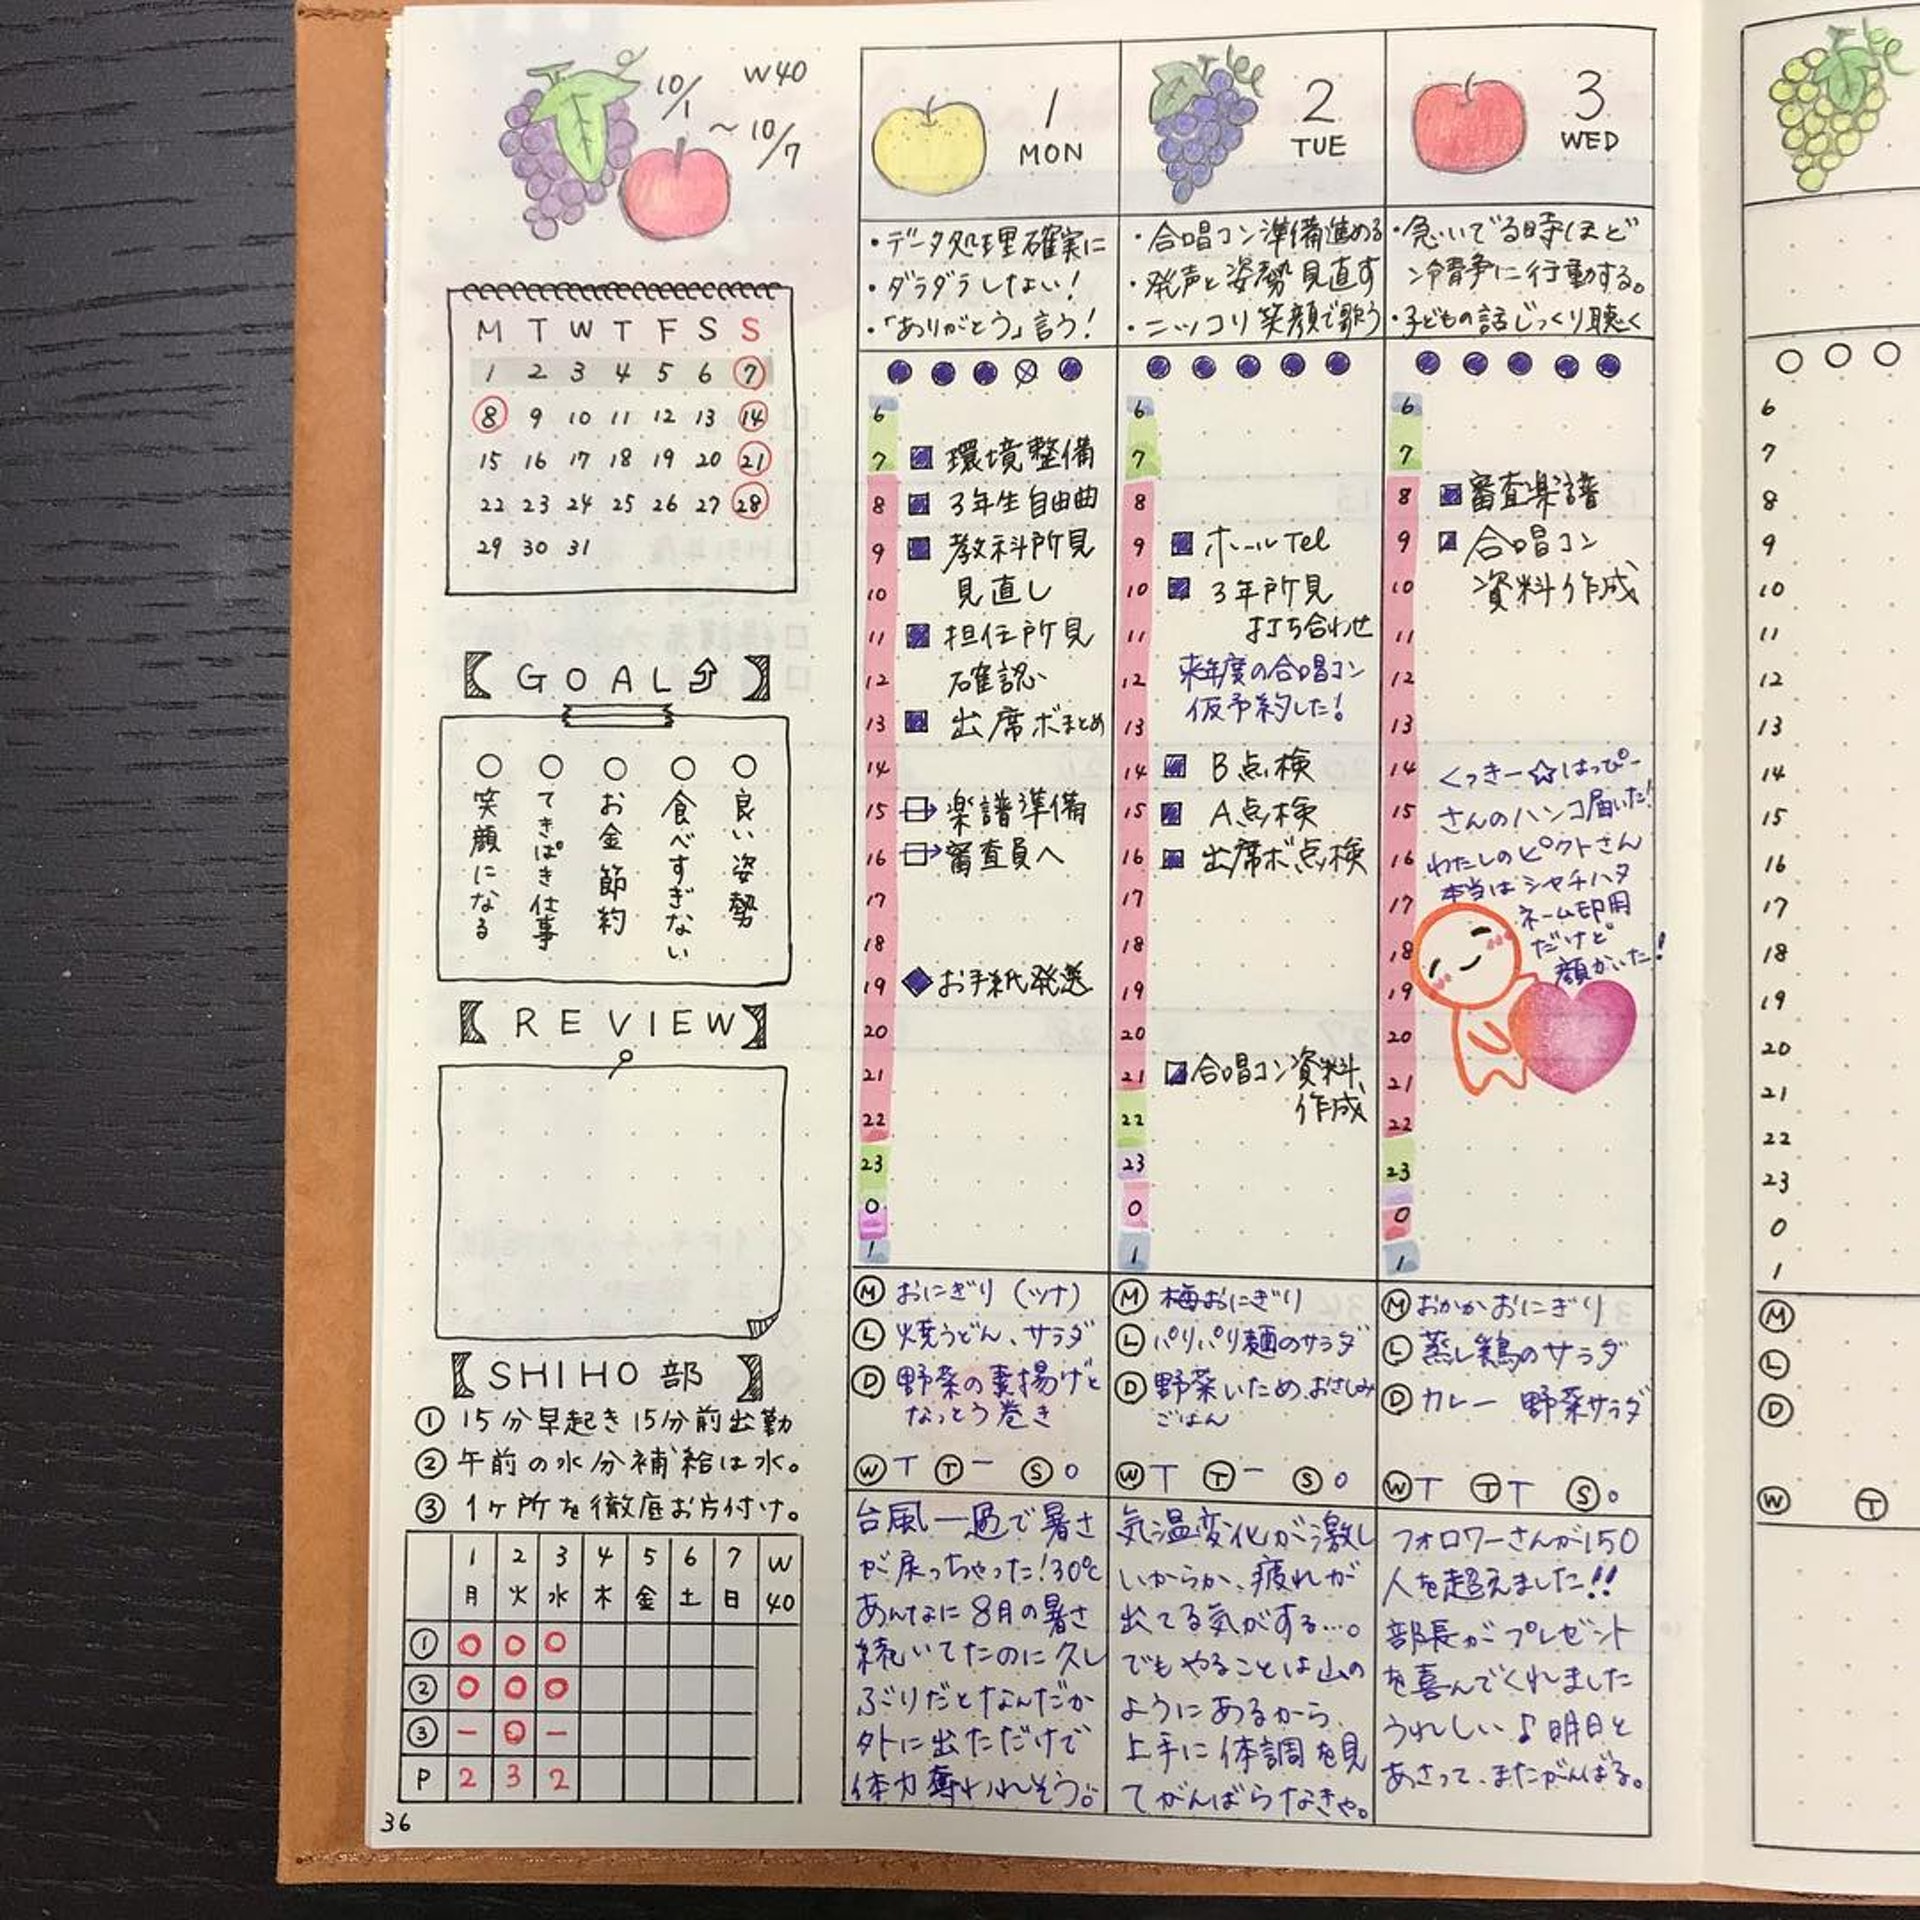 10/1 ~ 10/7
W40
M T W T F S S
1 2 3 4 5 6 7
8 9 10 11 12 13 14
15 16 17 18 19 20 21
22 23 24 25 26 27 28
29 30 31
【GOAL】
○良い姿勢
○食べすぎない
○お金節約
○てきぱき仕事
○笑顔になる
【REVIEW】
【SHIHO部】
① 15分早起き 15分前出勤
② 午前の水分補給は水。
③ 1ヶ所を徹底お片付け。
1 2 3 4 5 6 7 W
月 火 水 木 金 土 日 40
① ○ ○ ○
② ○ ○ ○
③ − ○ −
P 2 3 2
36
1
MON
・データ処理確実に
・ダラダラしない!
・「ありがとう」言う!
6
7 環境整備
8 3年生自由曲
9 教科所見
10 見直し
11 担任所見
12 確認
13 出席ボまとめ
14
15 楽譜準備
16 審査員へ
17
18
19 お手紙発送
20
21
22
23
0
1
Ⓜ おにぎり (ツナ)
Ⓛ 焼うどん、サラダ
Ⓓ 野菜の素揚げと
なっとう巻き
Ⓦ T Ⓣ − Ⓢ ○
台風一過で暑さ
が戻っちゃった!30℃
あんなに8月の暑さ
続いてたのに久し
ぶりだとなんだか
外に出ただけで
体力奪われそう。
2
TUE
・合唱コン準備進める
・発声と姿勢見直す
・ニッコリ笑顔で歌う
6
7
8
9 ホールTel
10 3年所見
11 打ち合わせ
12 来年度の合唱コン
13 仮予約した!
14 B点検
15 A点検
16 出席ボ点検
17
18
19
20
21 合唱コン資料
22 作成
23
0
1
Ⓜ 梅おにぎり
Ⓛ パリパリ麺のサラダ
Ⓓ 野菜いため、おさしみ
ごはん
Ⓦ T Ⓣ − Ⓢ ○
気温変化が激し
いからか、疲れが
出てる気がする…。
でもやることは山の
ようにあるから、
上手に体調を見
てがんばらなきゃ。
3
WED
・急いでる時ほど
冷静に行動する。
・子どもの話じっくり聴く
6
7
8 審査楽譜
9 合唱コン
10 資料作成
11
12
13
14 くっきー☆はっぴー
15 さんのハンコ届いた!
16 わたしのピクトさん
本当はシャチハタ
17 ネーム印用
18 だけど
顔かいた!
19
20
21
22
23
0
1
Ⓜ おかかおにぎり
Ⓛ 蒸し鶏のサラダ
Ⓓ カレー 野菜サラダ
Ⓦ T Ⓣ T Ⓢ ○
フォロワーさんが150
人を超えました!!
部長がプレゼント
を喜んでくれました
うれしい♪明日と
あさって、またがんばる。
6
7
8
9
10
11
12
13
14
15
16
17
18
19
20
21
22
23
0
1
Ⓜ
Ⓛ
Ⓓ
Ⓦ Ⓣ